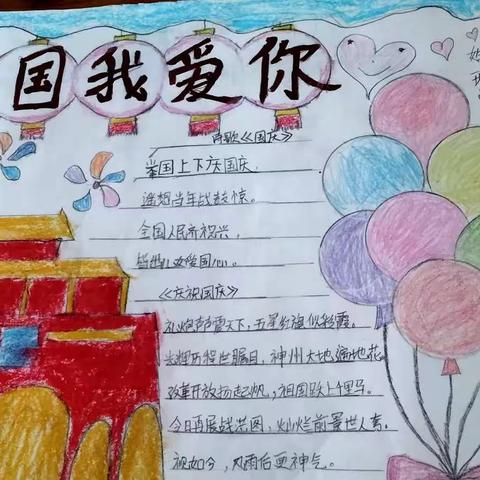 国我爱你
诗歌《国庆》
举国上下庆国庆.
遥想当年战鼓惊。
全国人民齐祝兴,
《庆祝国庆》
礼炮声声震天下,五星红旗似彩霞。
光辉历程世瞩目,神州大地遍地花。
改革开放扬起帆,祖国跃上千里马。
今日再展战芜图,灿烂前景世人夸。
视如今,风雨后更神气。